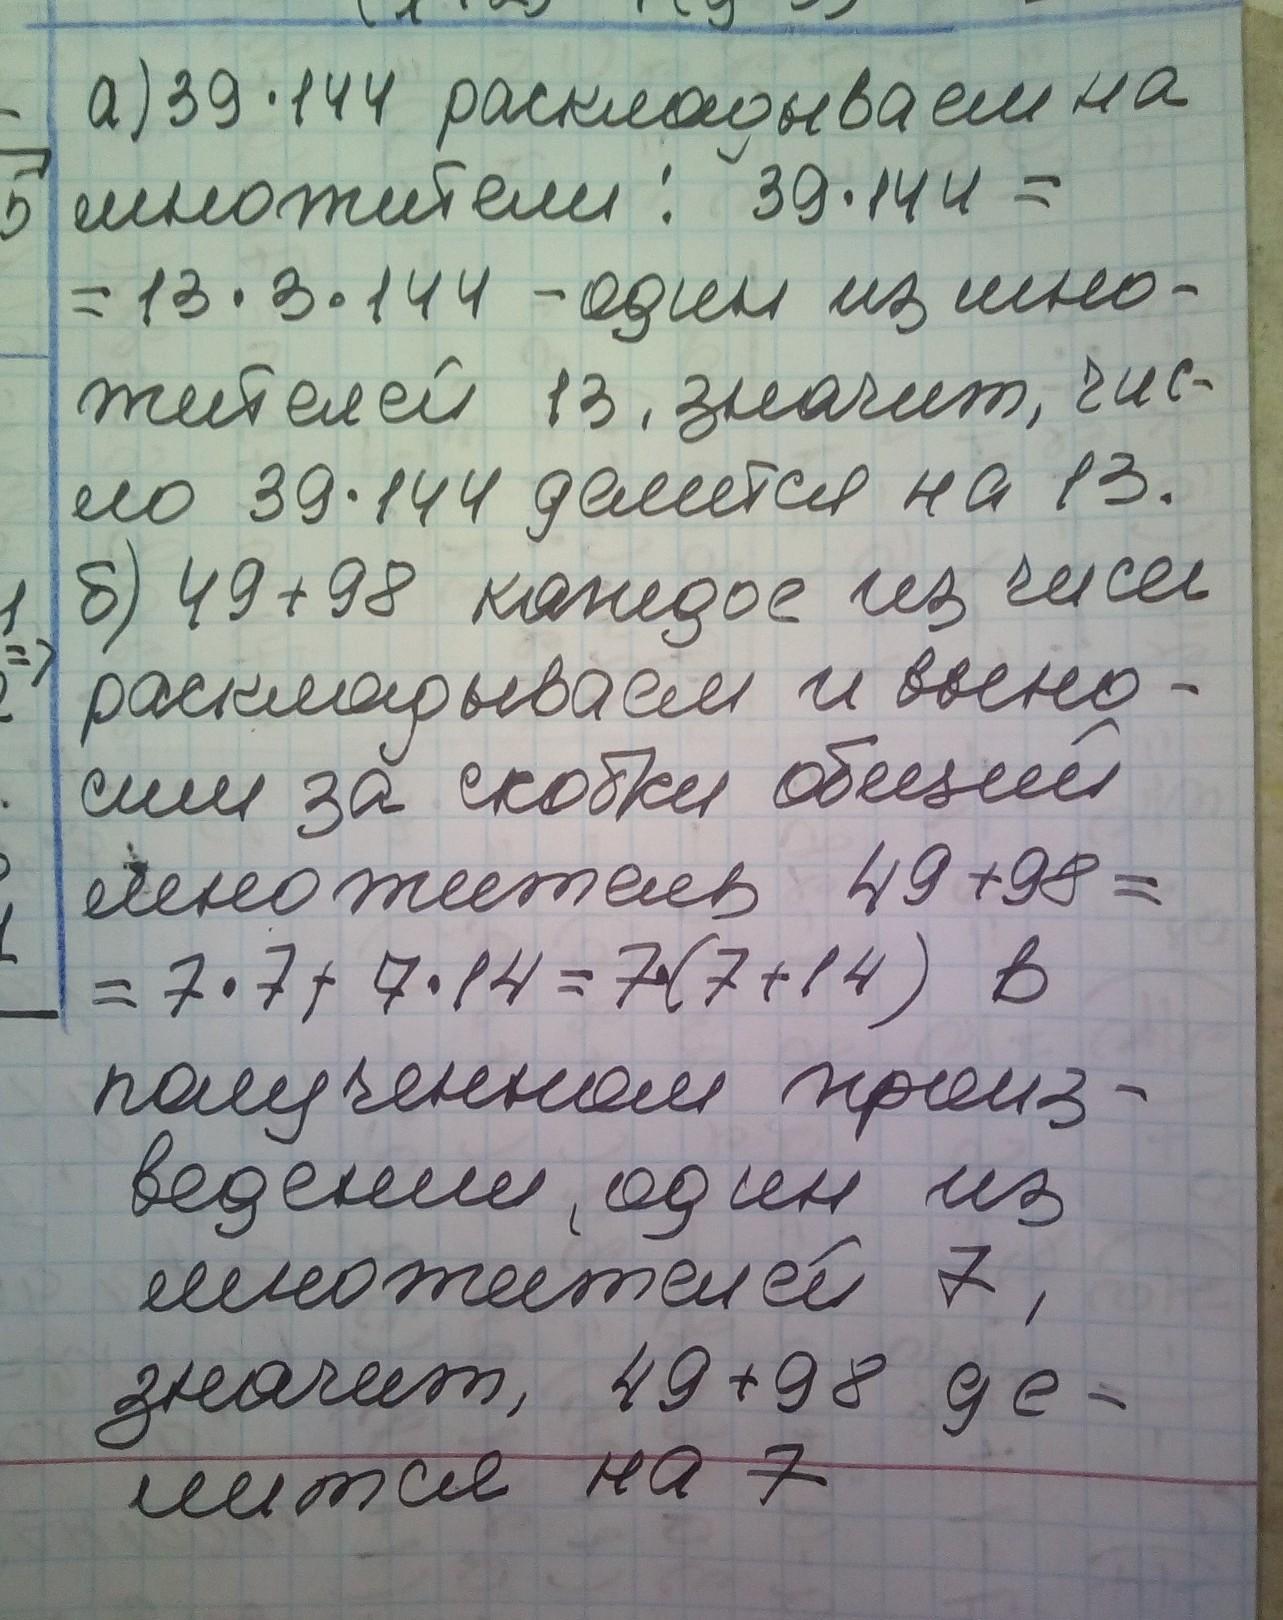 а) 39·144 раскладываем на
множители: 39·144 =
= 13·3·144 - один из мно-
жителей 13, значит, чис-
ло 39·144 делится на 13.
б) 49+98 каждое из чисел
раскладываем и выно-
сим за скобки общий
множитель 49+98=
= 7·7+ 7·14=7·(7+14) В
полученном произ-
ведении, один из
множителей 7,
значит, 49+98 де-
лится на 7